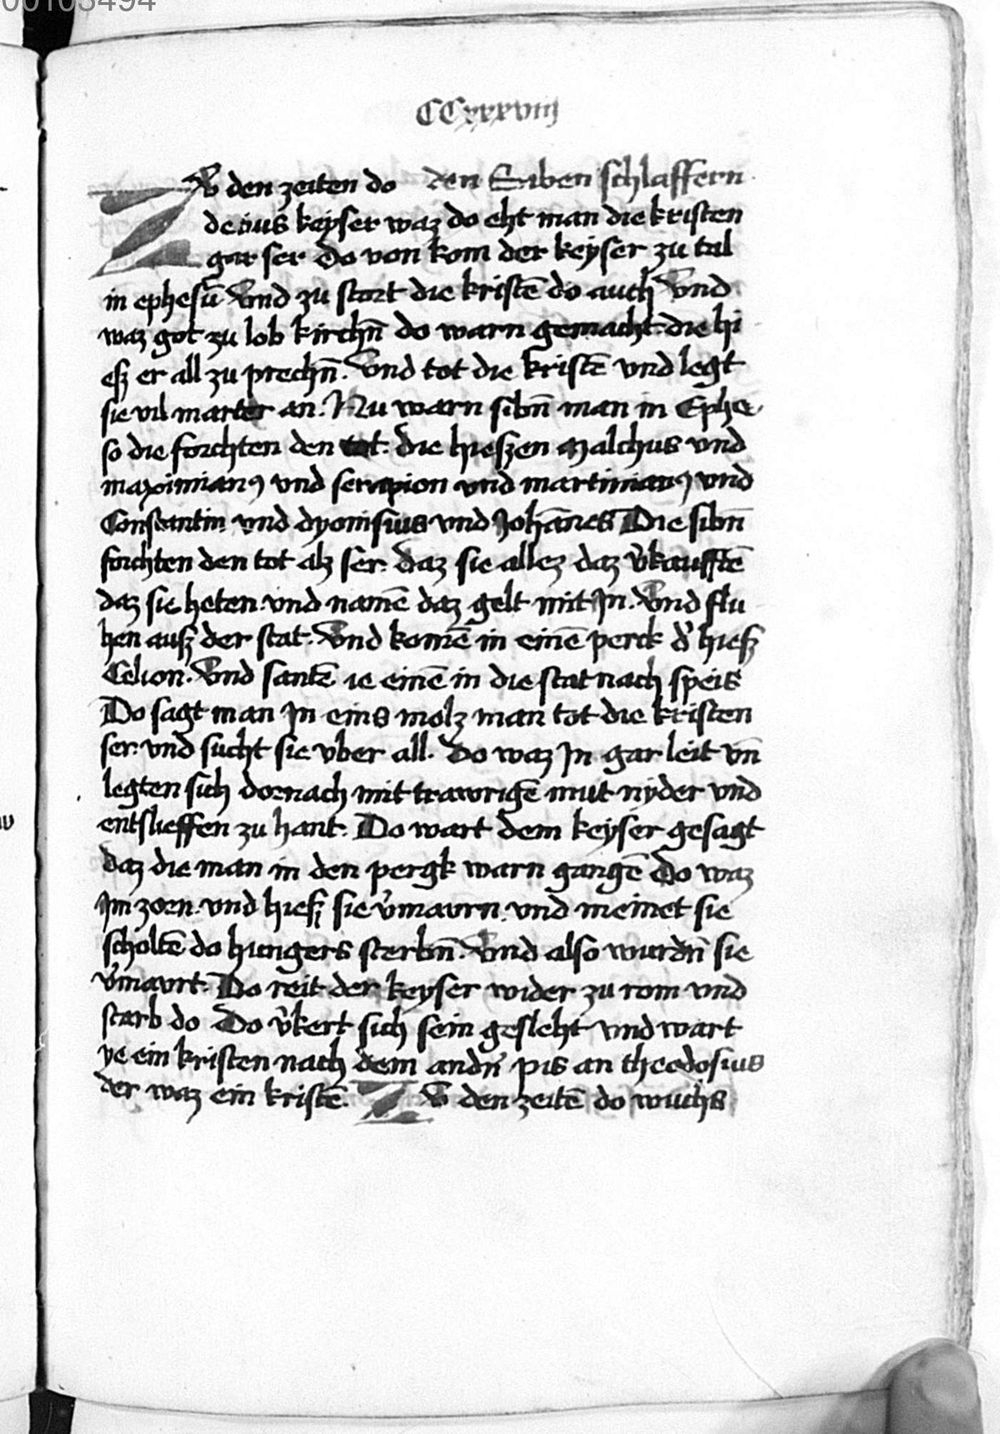 00103494
CCxxxviij
ZV den zeiten do den Siben schlaffern
decius keyser waz do eht man die kristen
gar ser Do von kom der keyser zu tal
in ephesū Vnd zu stort die kristē do auch Vnd
waz got zu lob kirchñ do warn gemacht die hi
eß er all zu prechñ. Vnd tot die kristē vnd legt
sie vil marter an. Nu warn sibñ man in Ephe
so die forchten den tot. die hieszen Malchus vnd
maximianꝰ vnd serapion vnd martinianꝰ vnd
Constantin vnd dyonisius vnd Johānes Die sibñ
forchten den tot alz ser. daz sie allez daz v̉kaufftē
daz sie heten. vnd namē daz gelt mit Jn. Vnd flu
hen auß der stat. Vnd komē in einē perck d̉ hieß
Celion. Vnd santē ie einē in die stat nach speis
Do sagt man Jn eins molz man tot die kristen
ser. vnd sucht sie vber all. Do waz Jn gar leit vñ
legten sich dornach mit trawrigē mut nyder vnd
entslieffen zu hant. Do wart dem keyser gesagt
daz die man in den pergk warn gangē Do waz
Jm zorn. vnd hieß sie v̉maurn. vnd meinet sie
scholtē do hungers sterbñ. Vnd also wurdñ sie
v̉maurt. Do reit der keyser wider zu rom vnd
starb do Do v̉kert sich sein gesleht vnd wart
ye ein kristen nach dem andñ pis an theodosius
der waz ein kristē. ZV den zeitē do wuchs